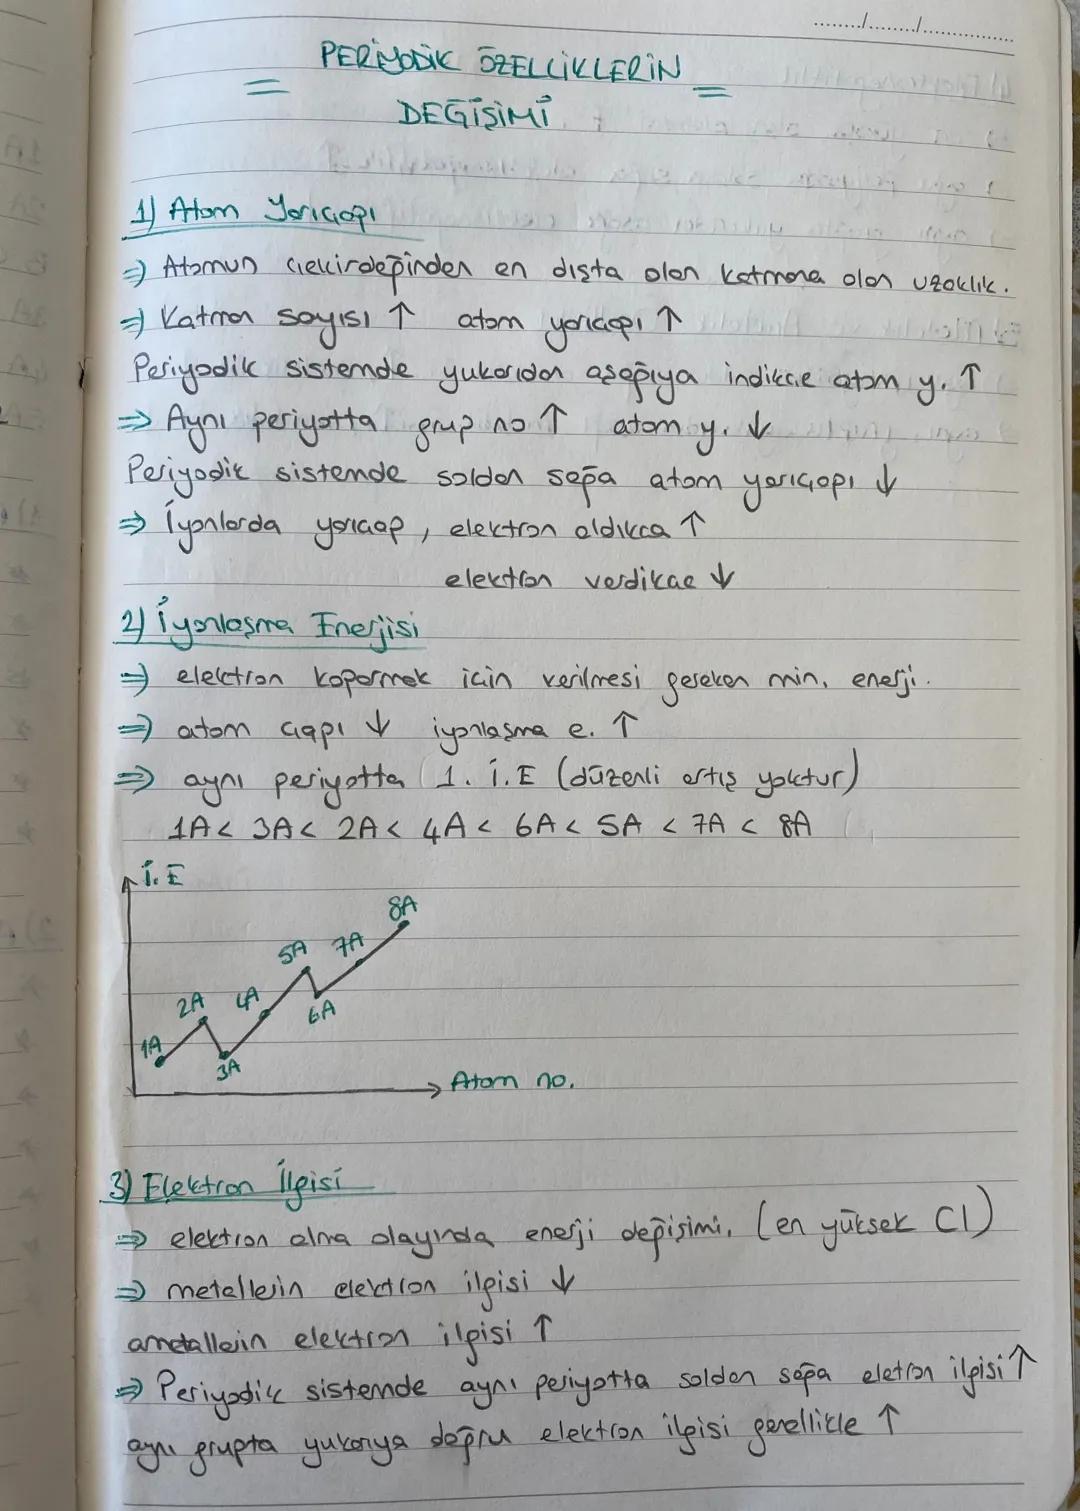 ......./......./...............
PERİYODİK ÖZELLİKLERİN
DEĞİŞİMİ
1) Atom Yarıçapı
⇒ Atomun çekirdeğinden en dışta olan katmana olan uzaklık.
⇒ Katman sayısı ↑ atom yarıçapı ↑
Periyodik sistemde yukarıdan aşağıya indikçe atom y. ↑
⇒ Aynı periyotta grup no ↑ atom y. ↓
Periyodik sistemde soldan sağa atom yarıçapı ↓
⇒ İyonlarda yarıçap, elektron aldıkca ↑
elektron verdikçe ↓
2) İyonlaşma Enerjisi
⇒ elektron koparmak için verilmesi gereken min. enerji.
⇒ atom çapı ↓ iyonlaşma e. ↑
⇒ aynı periyotta 1. İ.E (düzenli artış yoktur)
1A < 3A < 2A < 4A < 6A < 5A < 7A < 8A
İ.E
8A
5A 7A
2A 4A 6A
1A 3A
Atom no.
3) Elektron İlgisi
⇒ elektron alma olayında enerji değişimi. (en yüksek Cl)
⇒ metallerin elektron ilgisi ↓
ametallerin elektron ilgisi ↑
⇒ Periyodik sistemde aynı periyotta soldan sağa eletron ilgisi ↑
aynı grupta yukarıya doğru elektron ilgisi genellikle ↑